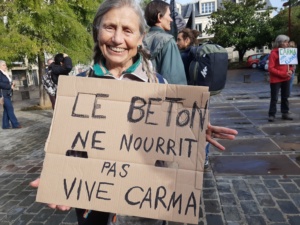 LE BETON
NE NOURRIT
PAS
VIVE CARMA